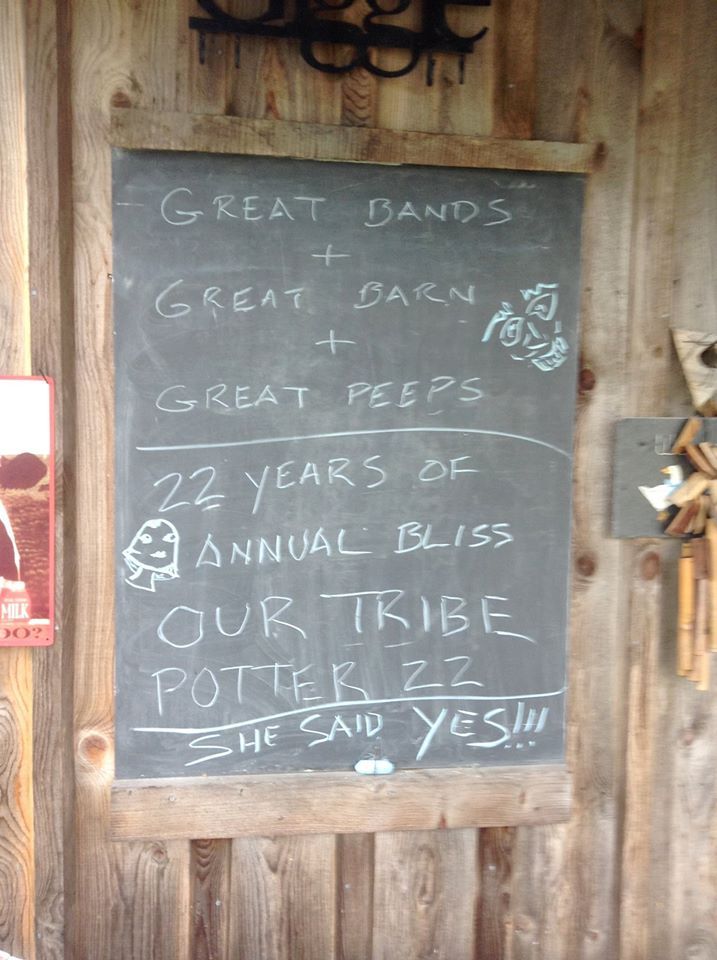 GREAT BANDS
+
GREAT BARN
+
GREAT PEEPS
22 YEARS OF
ANNUAL BLISS
OUR TRIBE
POTTER 22
SHE SAID YES!!!
MILK
OO?